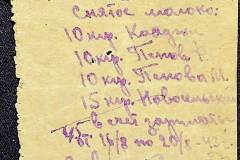 Снятое молоко:
10 кгр.
10 кгр. Попова Р.
10 кгр. Попова М.
15 кгр. Новосельск
в счет зарплаты
от 16/8 по 20/8-43 г.